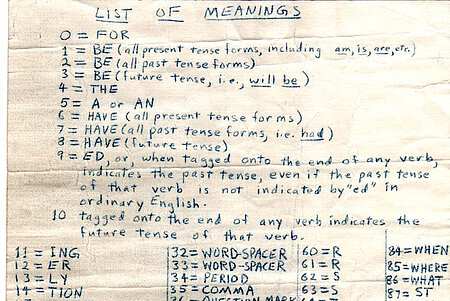 LIST OF MEANINGS
0 = FOR
1 = BE (all present tense forms, including am, is, are, etc.)
2 = BE (all past tense forms)
3 = BE (future tense, i.e., will be)
4 = THE
5 = A or AN
6 = HAVE (all present tense forms)
7 = HAVE (all past tense forms, i.e. had)
8 = HAVE (future tense)
9 = ED, or, when tagged onto the end of any verb,
indicates the past tense, even if the past tense
of that verb is not indicated by "ed" in
ordinary English.
10 tagged onto the end of any verb indicates the
future tense of that verb.
11 = ING 32 = WORD-SPACER 60 = R 84 = WHEN
12 = ER 33 = WORD-SPACER 61 = R 85 = WHERE
13 = LY 34 = PERIOD 62 = S 86 = WHAT
14 = TION 35 = COMMA 63 = S 87 = ST
QUESTION MARK